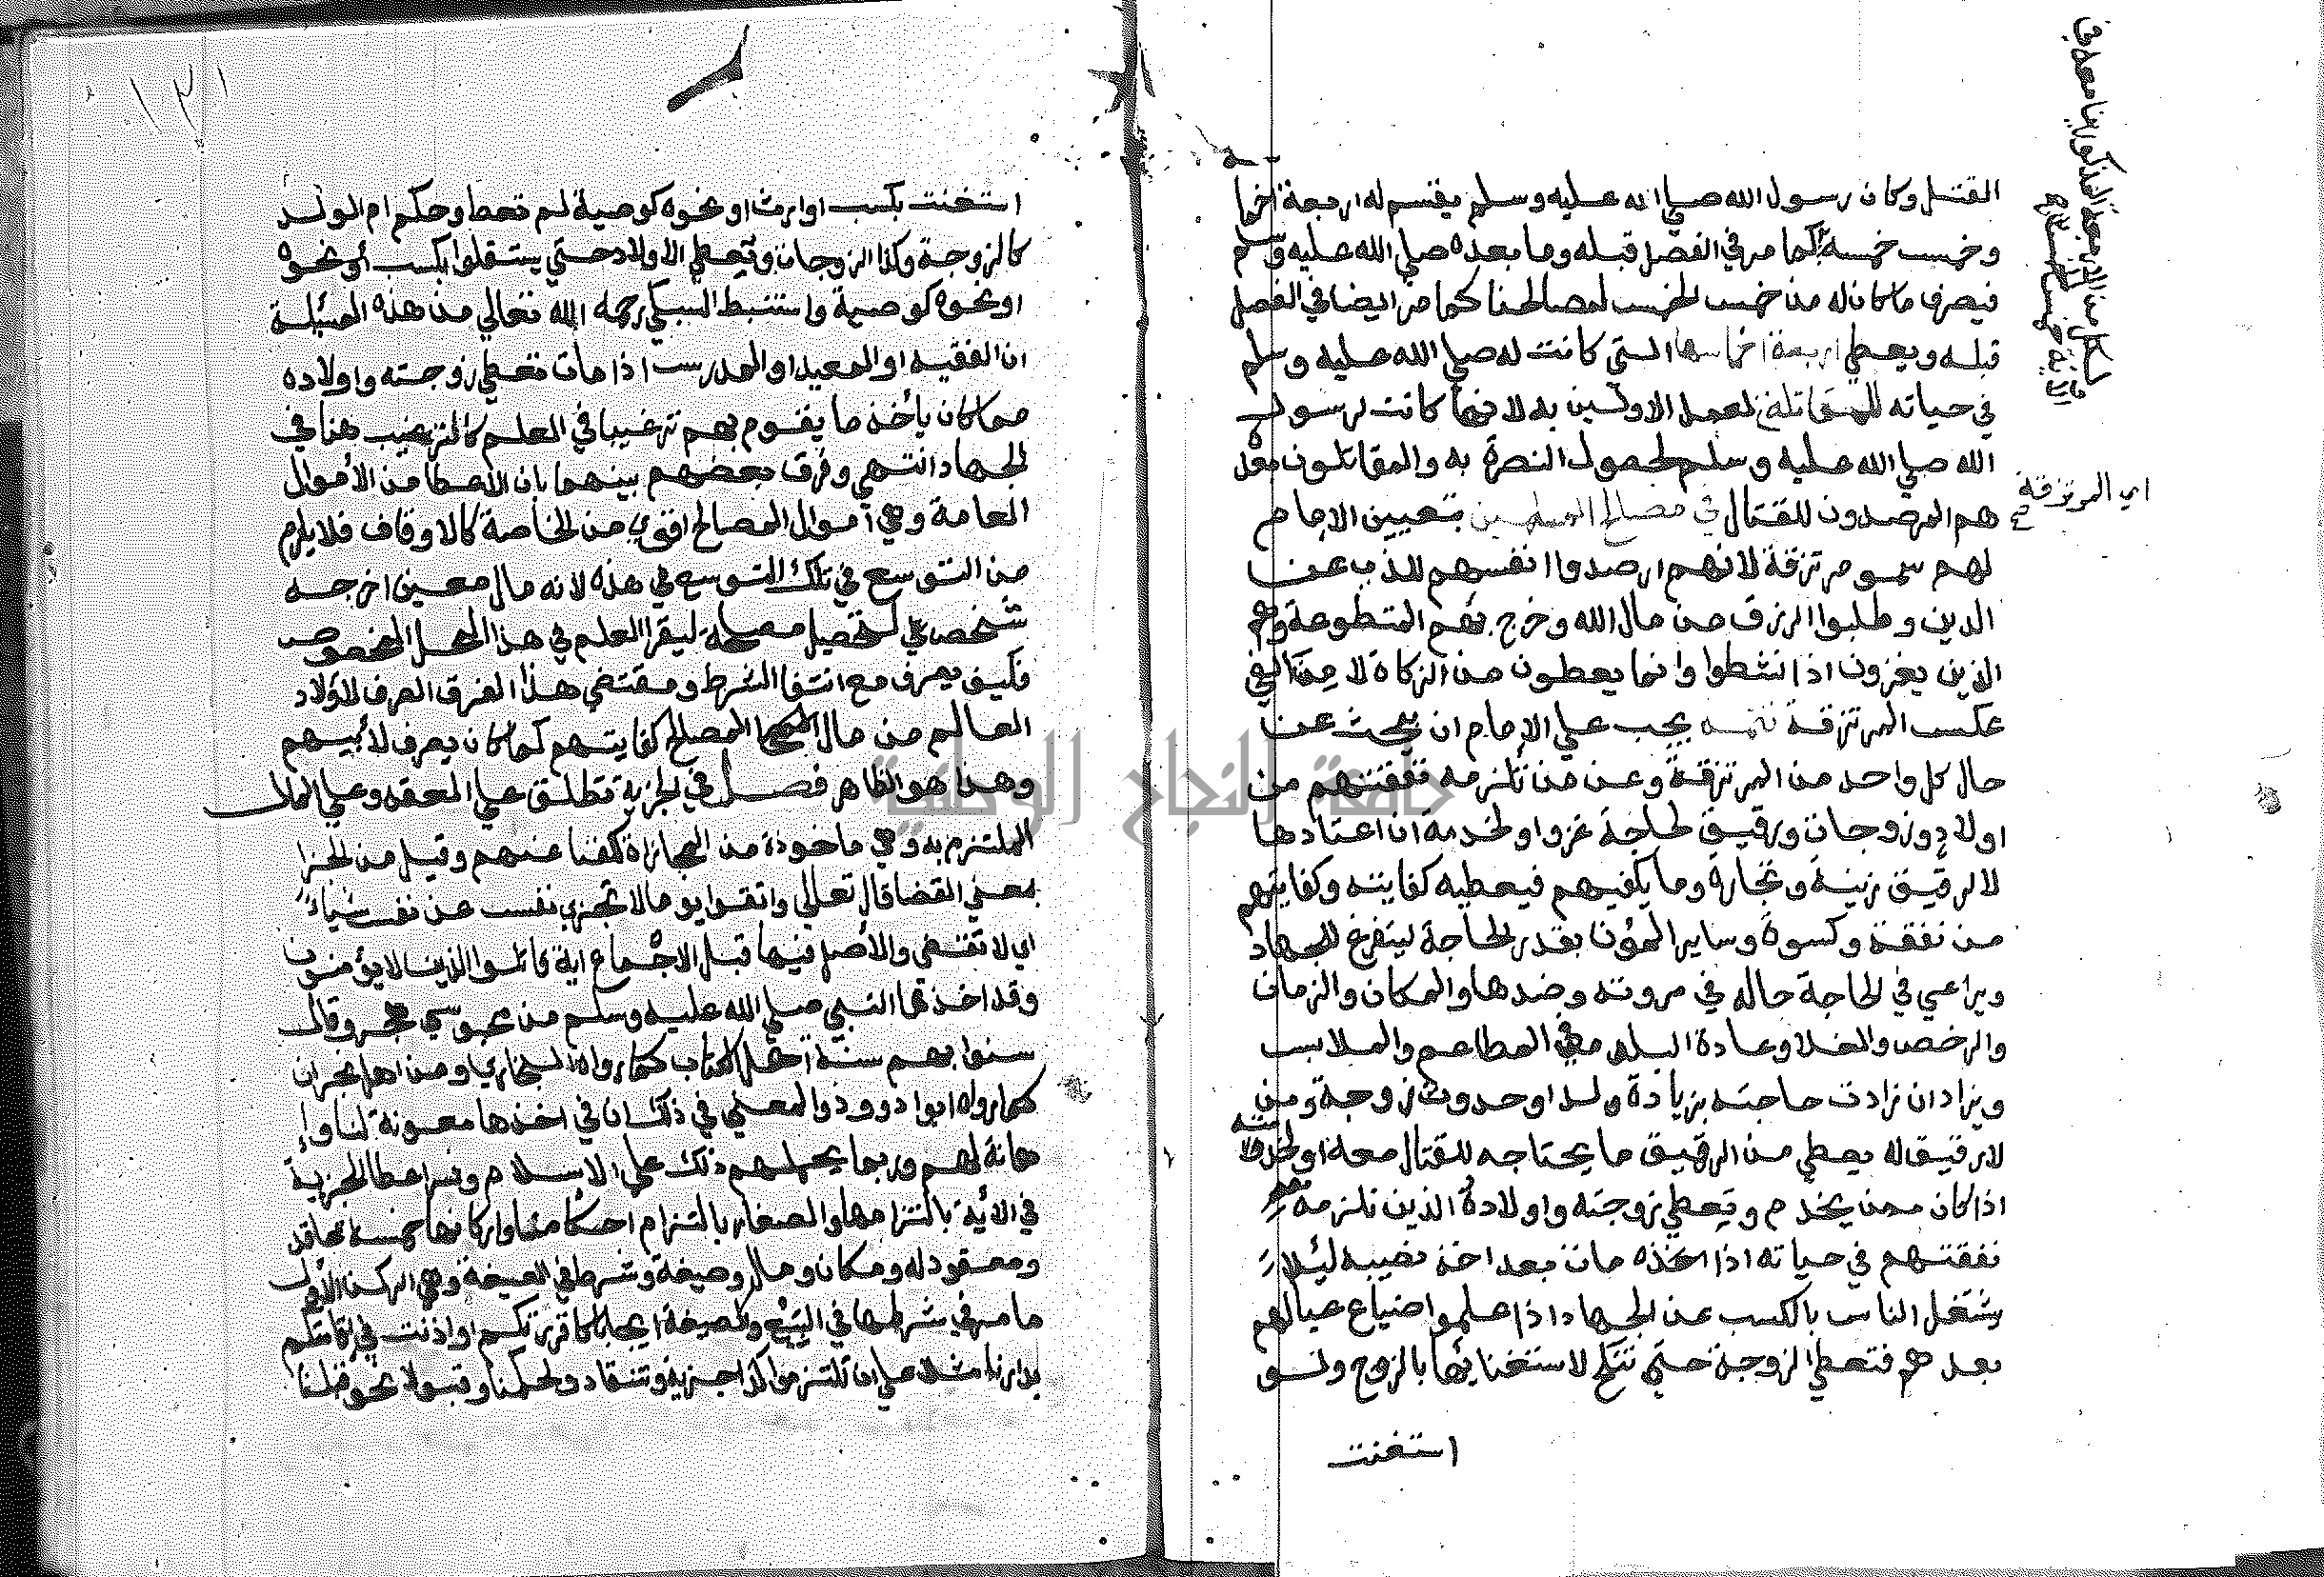 القتل وكان رسول الله صلى الله عليه وسلم يقسم له اربعة اخما
وخمس خمسة كما مر في الفصل قبله وما بعده صلى الله عليه وسلم
فيصرف ما كان له من خمس الخمس لمصالحنا كما مر ايضا في الفصل
قبله ويعطى اربعة اخماسها التي كانت له صلى الله عليه وسلم
في حياته للمقاتلة لعمل الاولين به لانها كانت لرسول
الله صلى الله عليه وسلم لحصول النصرة به والمقاتلون بعده
هم المرصدون للقتال في مصالح المسلمين بتعيين الامام
لهم سموا مرتزقة لانهم ارصدوا انفسهم للذب عن
الدين وطلبوا الرزق من مال الله وخرج بهم المتطوعة وهم
الذين يغزون اذا نشطوا وانما يعطون من الزكاة لا من الفي
عكس المرتزقة تتمه يجب على الامام ان يبحث عن
حال كل واحد من المرتزقة وعن من تلزمه نفقتهم من
اولاد وزوجات ورقيق لحاجة غزو او لخدمة ان اعتادها
لا لرقيق زينة وتجارة وما يكفيهم فيعطيه كفايته وكفايتهم
من نفقة وكسوة وساير المؤن بقدر الحاجة ليتفرغ للجهاد
ويراعي في الحاجة حاله في مروته وضدها والمكان والزمان
والرخص والغلا وعادة البلد في المطاعم والملابس
ويزاد ان زادت حاجته بزيادة ولد او حدوث زوجة ومن
لا رقيق له يعطى من الرقيق ما يحتاجه للقتال معه او لخدمته
اذا كان ممن يخدم ويعطي زوجته واولاده الذين تلزمه
نفقتهم في حياته اذا مات بعد اخذ نصيبه ليلا
يشتغل الناس بالكسب عن الجهاد اذا علموا ضياع عيالهم
بعدهم فتعطى الزوجة حتى تنكح لاستغنايها بالزوج ولو
استغنت
لكل من الاربعة المذكورين معه في
اي المرتزقة
١٣١
استغنت بكسب او ارث او نحوه كوصية لم تعط وحكم ام الولد
كالزوجة وكذا الزوجات ويعطى الاولاد حتى يستقلوا بكسب او نحوه
او نحوه كوصية واستنبط السبكي رحمه الله تعالى من هذه المسئلة
ان الفقيه او المعيد او المدرس اذا مات تعطى زوجته واولاده
مما كان يأخذ ما يقوم بهم ترغيبا في العلم كالترغيب هنا في
الجهاد انتهى وفرق بعضهم بينهما بان الاعطا من الأموال
العامة وهي اموال المصالح اقوى من الخاصة كالاوقاف فلا يلزم
من التوسع في تلك التوسع في هذه لانه مال معين اخرجه
شخص لتحصيل مصلحة ليقرا العلم في هذا المحل المخصوص
فكيف يصرف مع انتفا الشرط ومقتضى هذا الفرق الصرف لاولاد
العالم من مال المصالح كفايتهم كما كان يصرف لأبيهم
وهذا هو الظاهر فصل في الجزية تطلق على العقد وعلى المال
الملتزم به وهي ماخوذة من المجازاة لكفنا عنهم وقيل من الجزا
بمعنى القضا قال تعالى واتقوا يوما لا تجزي نفس عن نفس شيأ
اي لا تقضى والأصل فيها قبل الاجماع اية قاتلوا الذين لا يؤمنون
وقد اخذها النبي صلى الله عليه وسلم من مجوس هجر وقال
سنوا بهم سنة اهل الكتاب كما رواه البخاري ومن اهل نجران
كما رواه ابوا داوود والمعنى في ذلك ان في اخذها معونة لنا وا
هانة لهم وربما يحملهم ذلك على الاسلام وفسر اعطا الجزية
في الأية بالتزامها والصغار بالتزام احكامنا واركانها خمسة عاقد
ومعقود له ومكان ومال وصيغة وشرط في الصيغة وهي الركن الأول
ما مر في شرطها في البيع والصيغة ايجابا كاقررتكم او اذنت في اقامتكم
بدارنا مثلا على ان تلتزموا كذا جزية وتنقادوا لحكمنا وقبولا نحو قبلنا
جامعة النجاح الوطنية